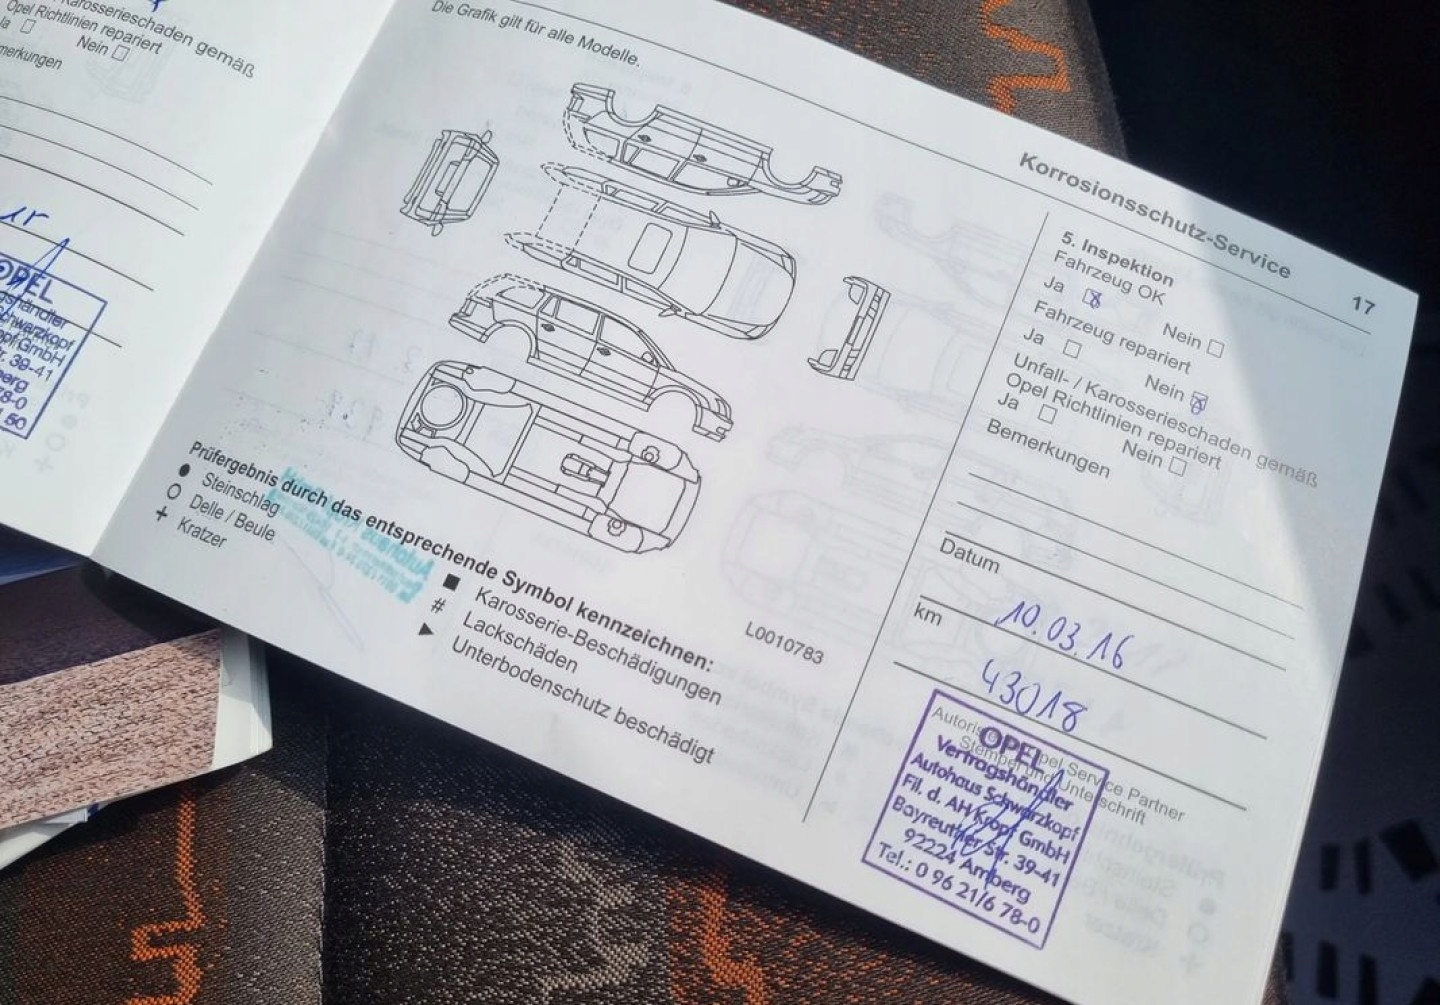 Karosserieschaden gemäß
Opel Richtlinien repariert
Ja
Nein
OPEL
Schwarzkopf
GmbH
39-41
78-0
Die Grafik gilt für alle Modelle.
L0010783
Prüfergebnis durch das entsprechende Symbol kennzeichnen:
● Steinschlag
○ Delle / Beule
+ Kratzer
■ Karosserie-Beschädigungen
# Lackschäden
► Unterbodenschutz beschädigt
Korrosionsschutz-Service
17
5. Inspektion
Fahrzeug OK
Ja ☒ Nein ☐
Fahrzeug repariert
Ja ☐ Nein ☒
Unfall- / Karosserieschaden gemäß
Opel Richtlinien repariert
Ja ☐ Nein ☐
Bemerkungen
Datum
10.03.16
km
43018
Stempel und Unterschrift
OPEL
Vertragshändler
Autohaus Schwarzkopf
Fil. d. AH Kropf GmbH
Bayreuther Str. 39-41
92224 Amberg
Tel.: 0 96 21/6 78-0